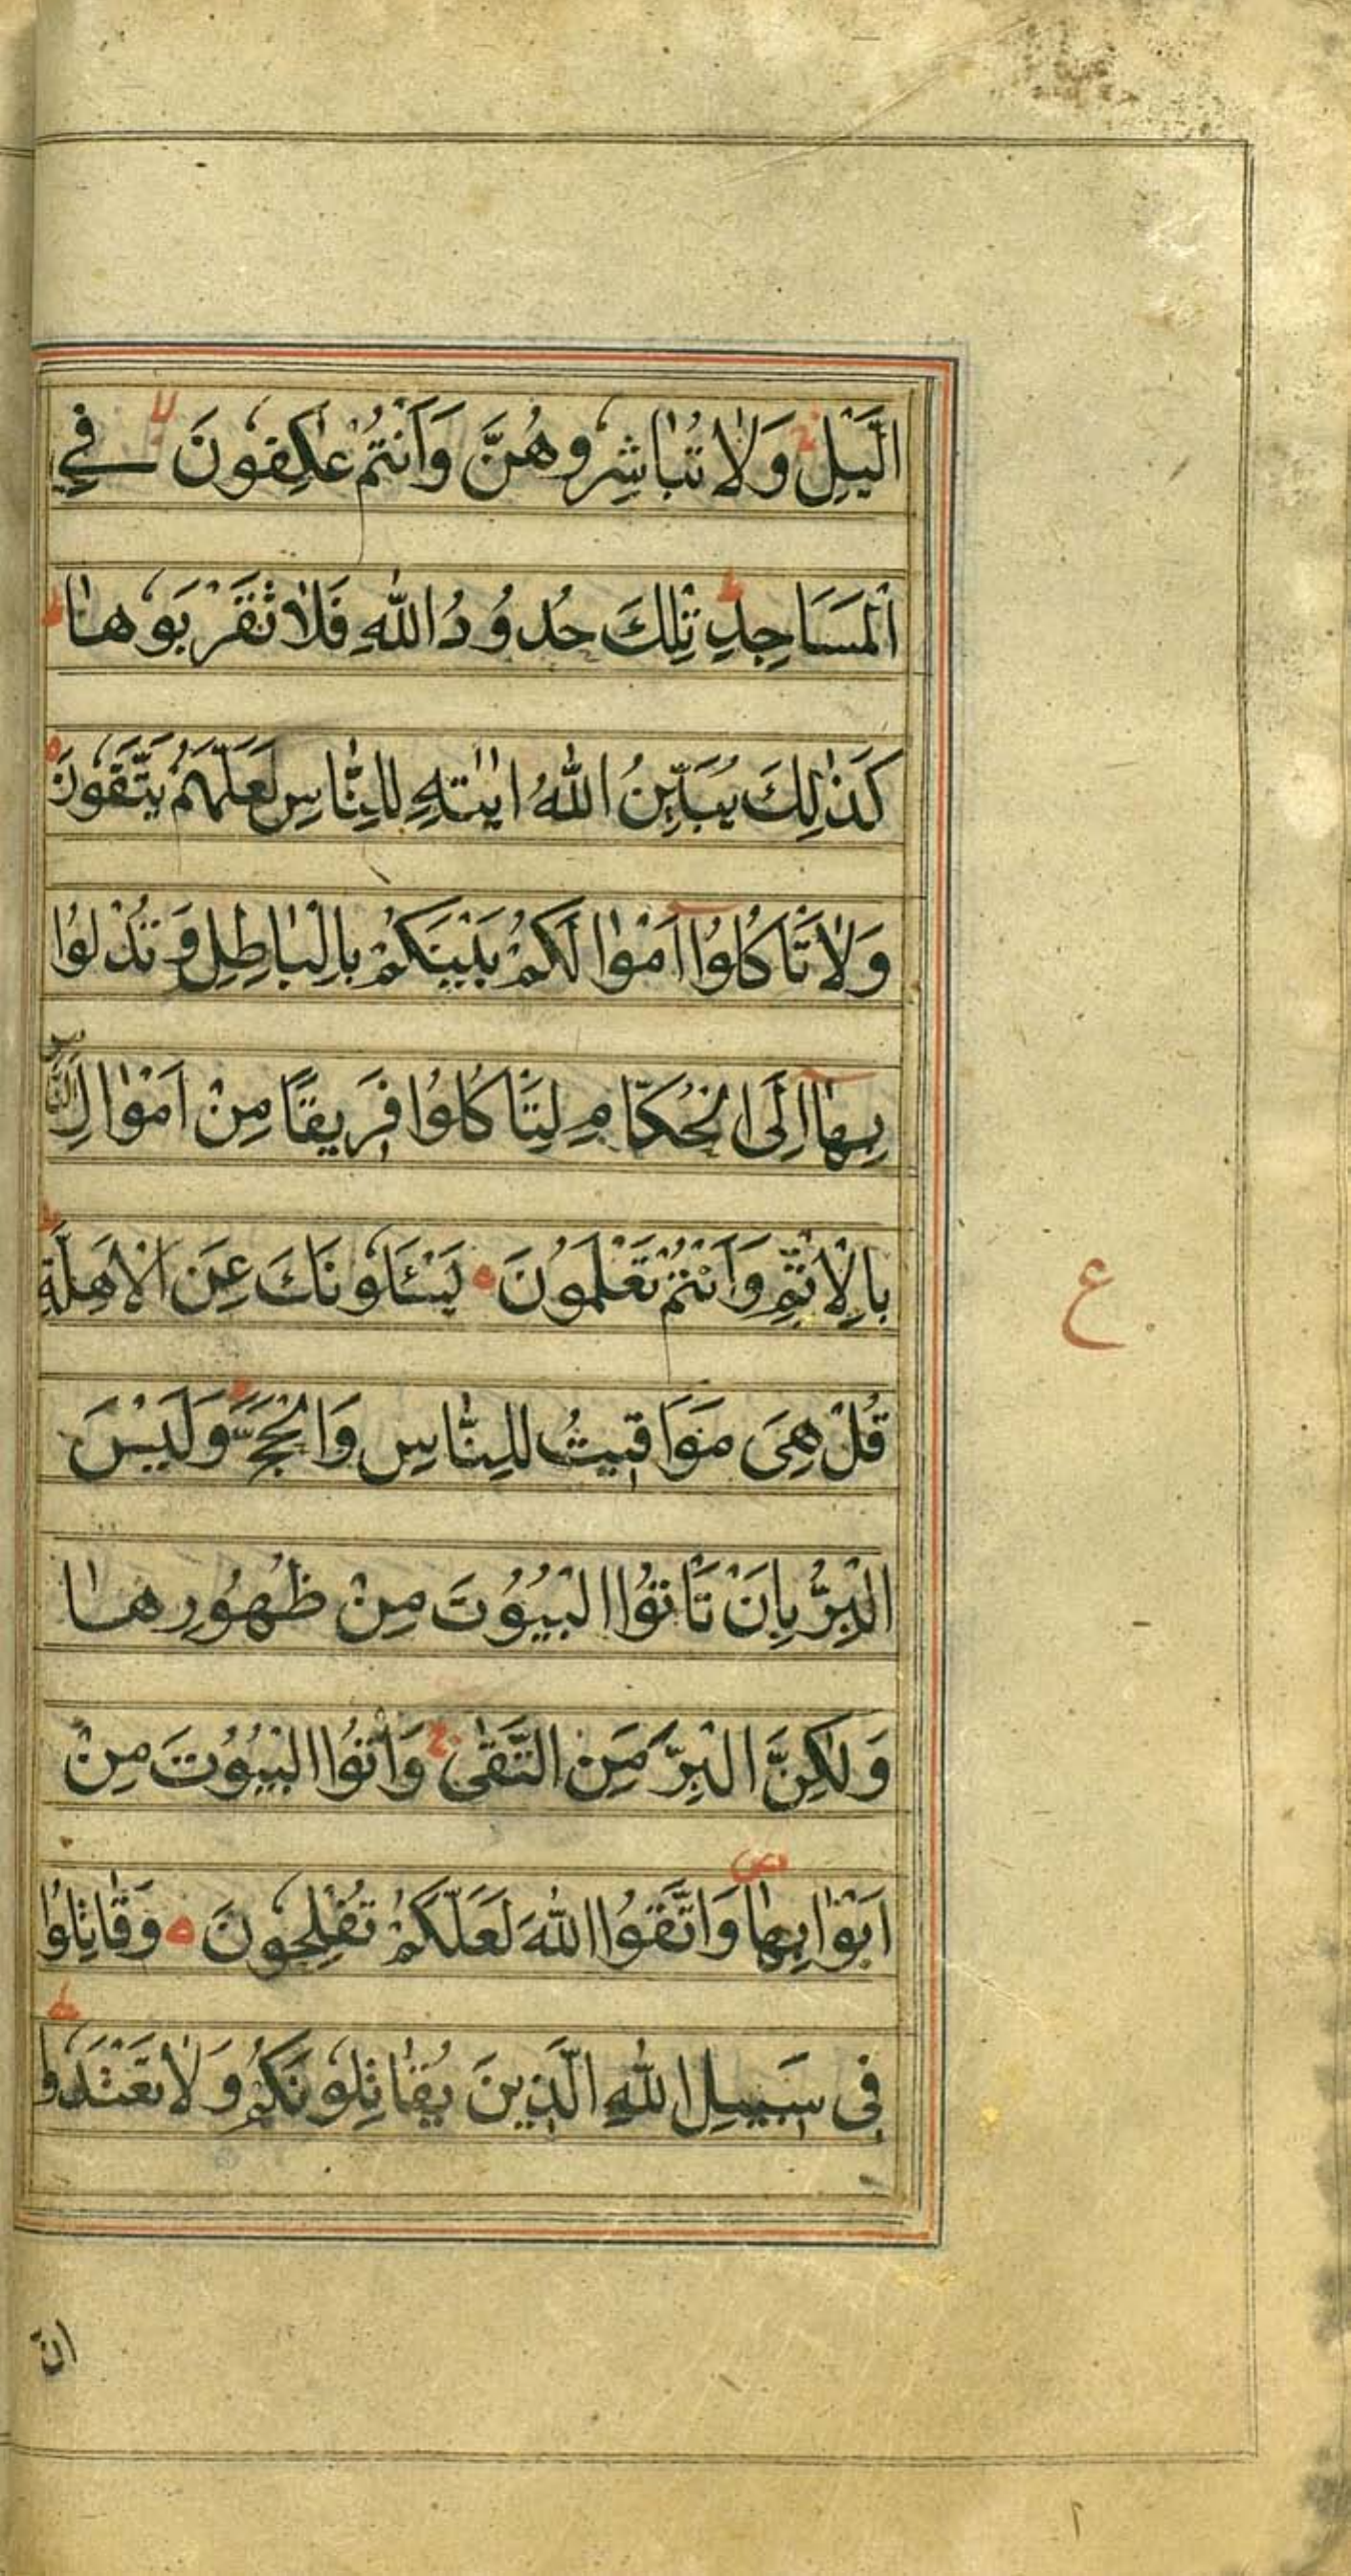 الَّيْلِ ۚ وَلَا تُبَاشِرُوهُنَّ وَأَنْتُمْ عٰكِفُونَ ۙ فِي
الْمَسَاجِدِ ؕ تِلْكَ حُدُودُ اللّٰهِ فَلَا تَقْرَبُوهَا ؕ
كَذٰلِكَ يُبَيِّنُ اللّٰهُ اٰيٰتِهٖ لِلنَّاسِ لَعَلَّهُمْ يَتَّقُونَ ه
وَلَا تَاْكُلُوْٓا اَمْوَالَكُمْ بَيْنَكُمْ بِالْبَاطِلِ وَتُدْلُوْا
بِهَآ اِلَى الْحُكَّامِ لِتَاْكُلُوْا فَرِيقًا مِنْ اَمْوَالِ النَّاسِ
بِالْاِثْمِ وَاَنْتُمْ تَعْلَمُونَ ه يَسْئَلُونَكَ عَنِ الْاَهِلَّةِ ؕ
ع
قُلْ هِيَ مَوَاقِيتُ لِلنَّاسِ وَالْحَجِّ ؕ وَلَيْسَ
الْبِرُّ بِاَنْ تَاْتُوا الْبُيُوتَ مِنْ ظُهُورِهَا
وَلٰكِنَّ الْبِرَّ مَنِ اتَّقٰى ۚ وَاْتُوا الْبُيُوتَ مِنْ
اَبْوَابِهَا ص وَاتَّقُوا اللّٰهَ لَعَلَّكُمْ تُفْلِحُونَ ه وَقَاتِلُوْا
فِي سَبِيلِ اللّٰهِ الَّذِينَ يُقَاتِلُونَكُمْ وَلَا تَعْتَدُوْا ؕ
انّ